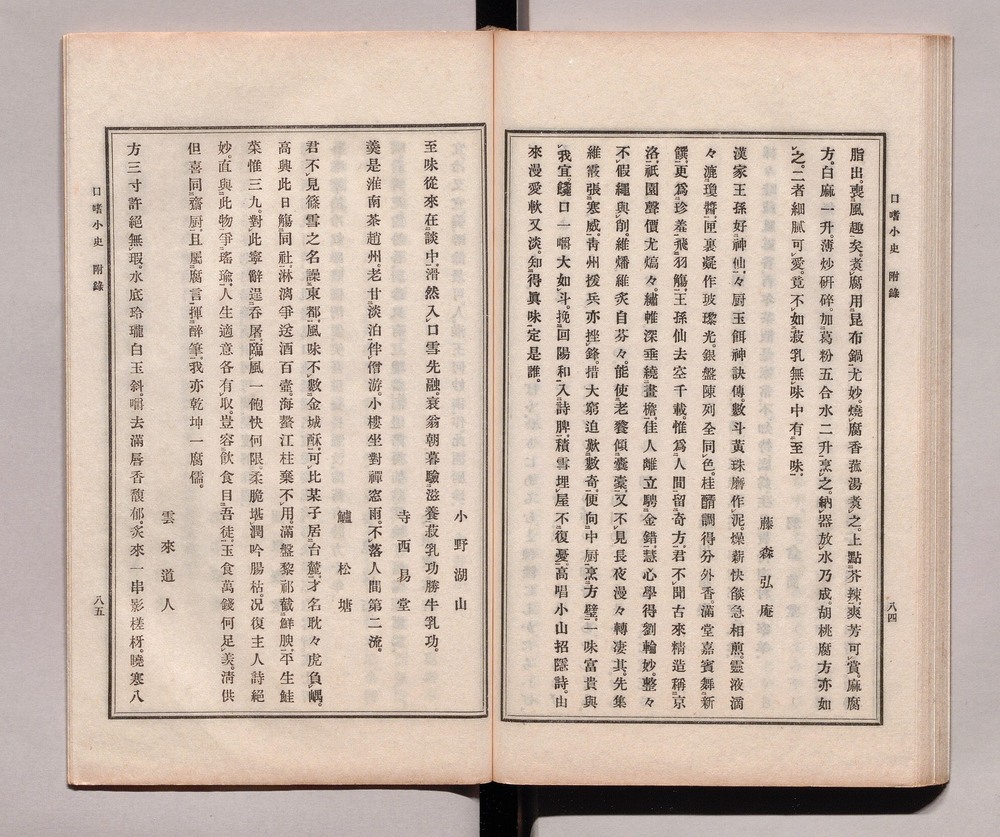 口嗜小史　附錄
八四
脂出。喪風趣矣。煮腐用昆布鍋。尤妙。燒腐香菰湯煮之。上點芥辣。爽芳可賞。麻腐
方。白麻一升。薄炒研碎。加葛粉五合水二升。烹之。納器放水乃成。胡桃腐方亦如
之。二者細膩可愛。竟不如菽乳無味中有至味。
藤森弘庵
漢家王孫好神仙。々厨玉餌神訣傳。數斗黃珠磨作泥。燥薪快燄急相煎。靈液滴
々漉瓊醬。匣裏凝作玻瓈光。銀盤陳列全同色。桂醑調得分外香。滿堂嘉賓舞新
饌。更爲珍羞飛羽觴。王孫仙去空千載。惟爲人間留奇方。君不聞古來精造稱京
洛。祇園聲價尤熇々。繡帷深垂繞畫檐。佳人離立騁金錯。慧心學得劉輪妙。整々
不假繩與削。維燔維炙自芬々。能使老饕傾囊槖。又不見長夜漫々轉凄其。先集
維霰張寒威。靑州援兵亦挫鋒。措大窮追歎數奇。便向中厨烹方璧。一味富貴與
我宜。饞口一嚼大如斗。挽回陽和入詩脾。積雪埋屋不復憂。高唱小山招隱詩。由
來漫愛軟又淡。知得眞味定是誰。
小野湖山
至味從來在談中。滑然入口雪先融。衰翁朝暮驗滋養。菽乳功勝牛乳功。
寺西易堂
羹是淮南茶趙州。老甘淡泊伴僧游。小樓坐對禪窓雨。不落人間第二流。
鱸松塘
君不見篠雪之名譟東都。風味不數金城酥。可比某子居台麓。才名耽々虎負嵎。
高興此日觴同社。淋漓爭送酒百壺。海螯江柱棄不用。滿盤黎祁截鮮腴。平生鮭
菜惟三九。對此寧辭逞吞屠。臨風一飽快何限。柔脆堪潤吟腸枯。况復主人詩絕
妙。直與此物爭瑤瑜。人生適意各有取。豈容飮食目吾徒。玉食萬錢何足羨。淸供
但喜同齋厨。且屬腐言揮醉筆。我亦乾坤一腐儒。
雲來道人
方三寸許絕無瑕。水底玲瓏白玉斜。嚼去滿唇香馥郁。炙來一串影槎枒。曉寒八
口嗜小史　附錄
八五